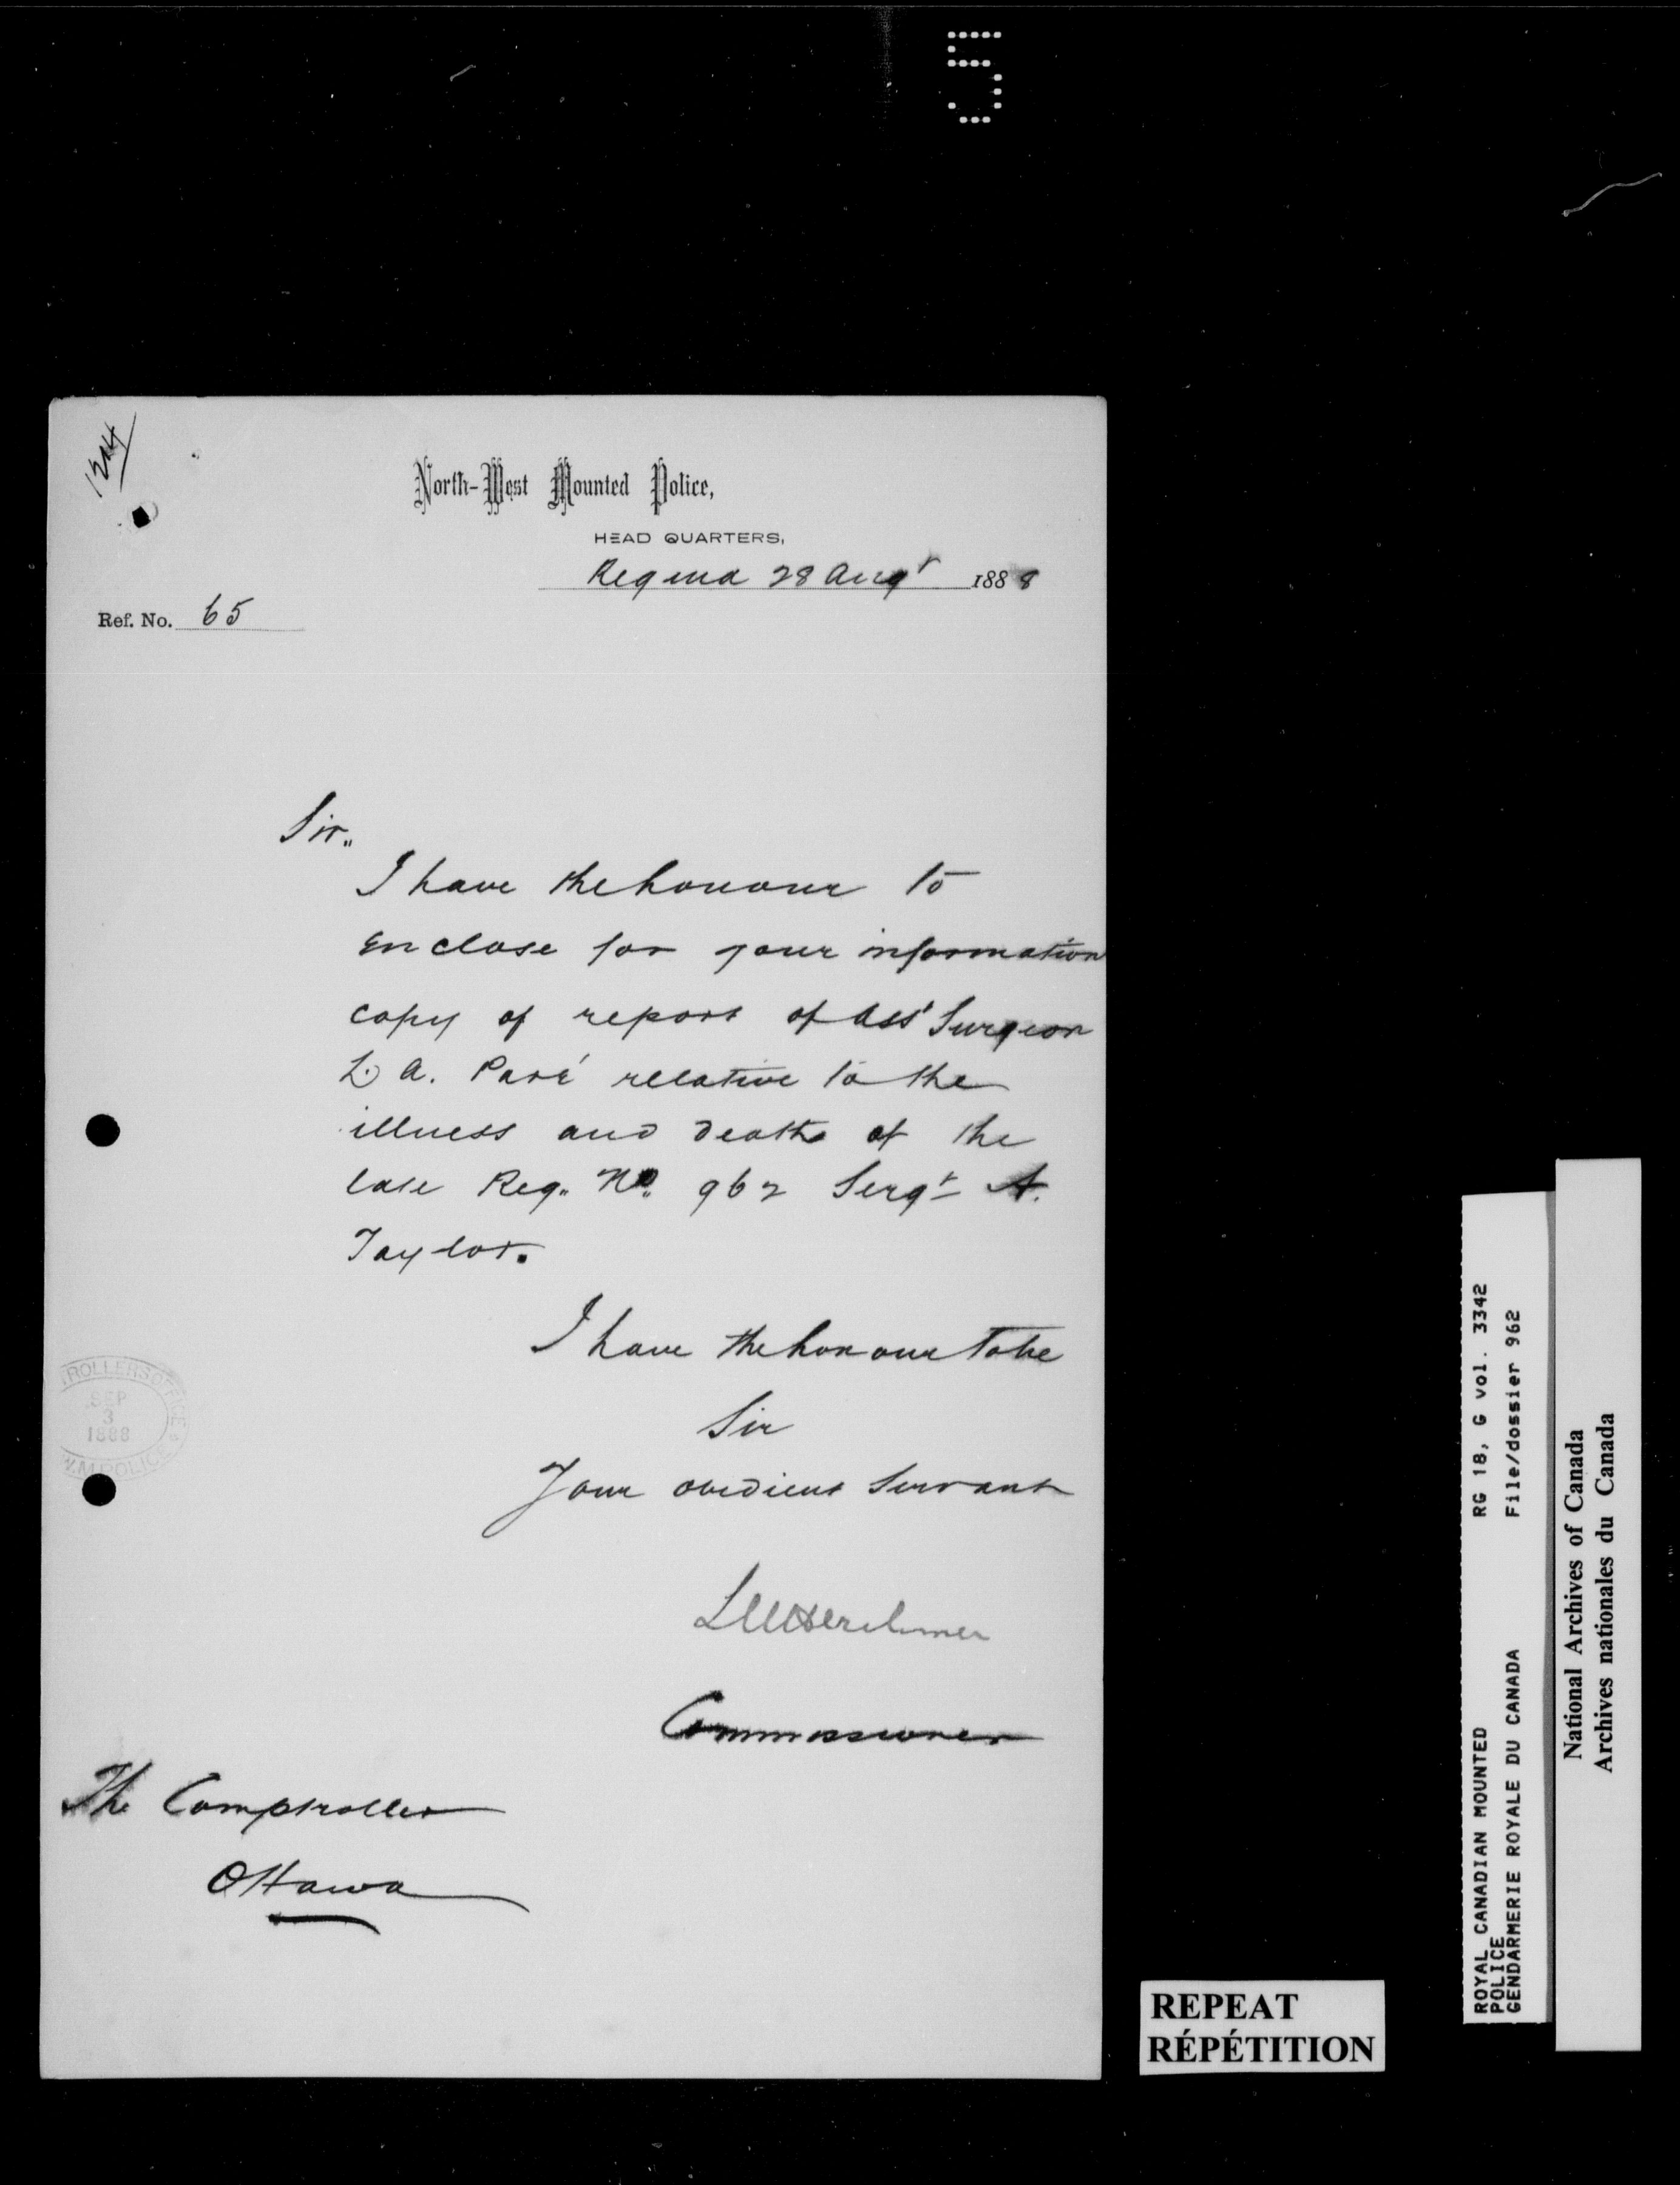 5
1214
North-West Mounted Police,
HEAD QUARTERS,
Regina 28 Augt 1888
Ref. No. 65
Sir,,
I have the honour to
enclose for your information
copy of report of Asst Surgeon
L. A. Paré relative to the
illness and death of the
late Reg. No. 962 Sergt A.
Taylor.
I have the honour to be
Sir
Your obedient servant
LWHerchmer
Commissioner
The Comptroller
Ottawa
TROLLERS OFFICE
SEP
3
1888
W.M.POLICE
REPEAT
RÉPÉTITION
ROYAL CANADIAN MOUNTED RG 18, G vol. 3342
POLICE
GENDARMERIE ROYALE DU CANADA File/dossier 962
National Archives of Canada
Archives nationales du Canada